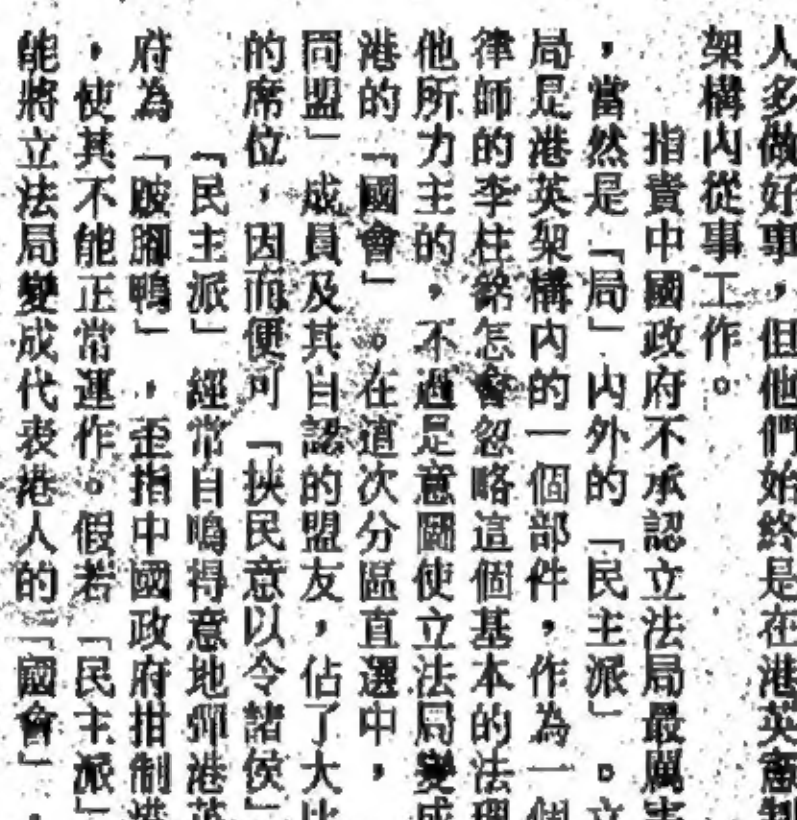 人多做好事，但他們始終是在港英憲制
架構內從事工作。
指責中國政府不承認立法局最厲害
，當然是「局」內外的「民主派」。立
局是港英架構內的一個部件，作為一個
律師的李柱銘怎會忽略這個基本的法理
他所力主的，不過是意圖使立法局變成
港的「國會」。在這次分區直選中，
同盟」成員及其自認的盟友，佔了大比
的席位，因而便可「挾民意以令諸侯」
「民主派」經常自鳴得意地彈港英
府為「跛腳鴨」，歪指中國政府拑制港
，使其不能正常運作。假若「民主派」
能將立法局變成代表港人的「國會」，